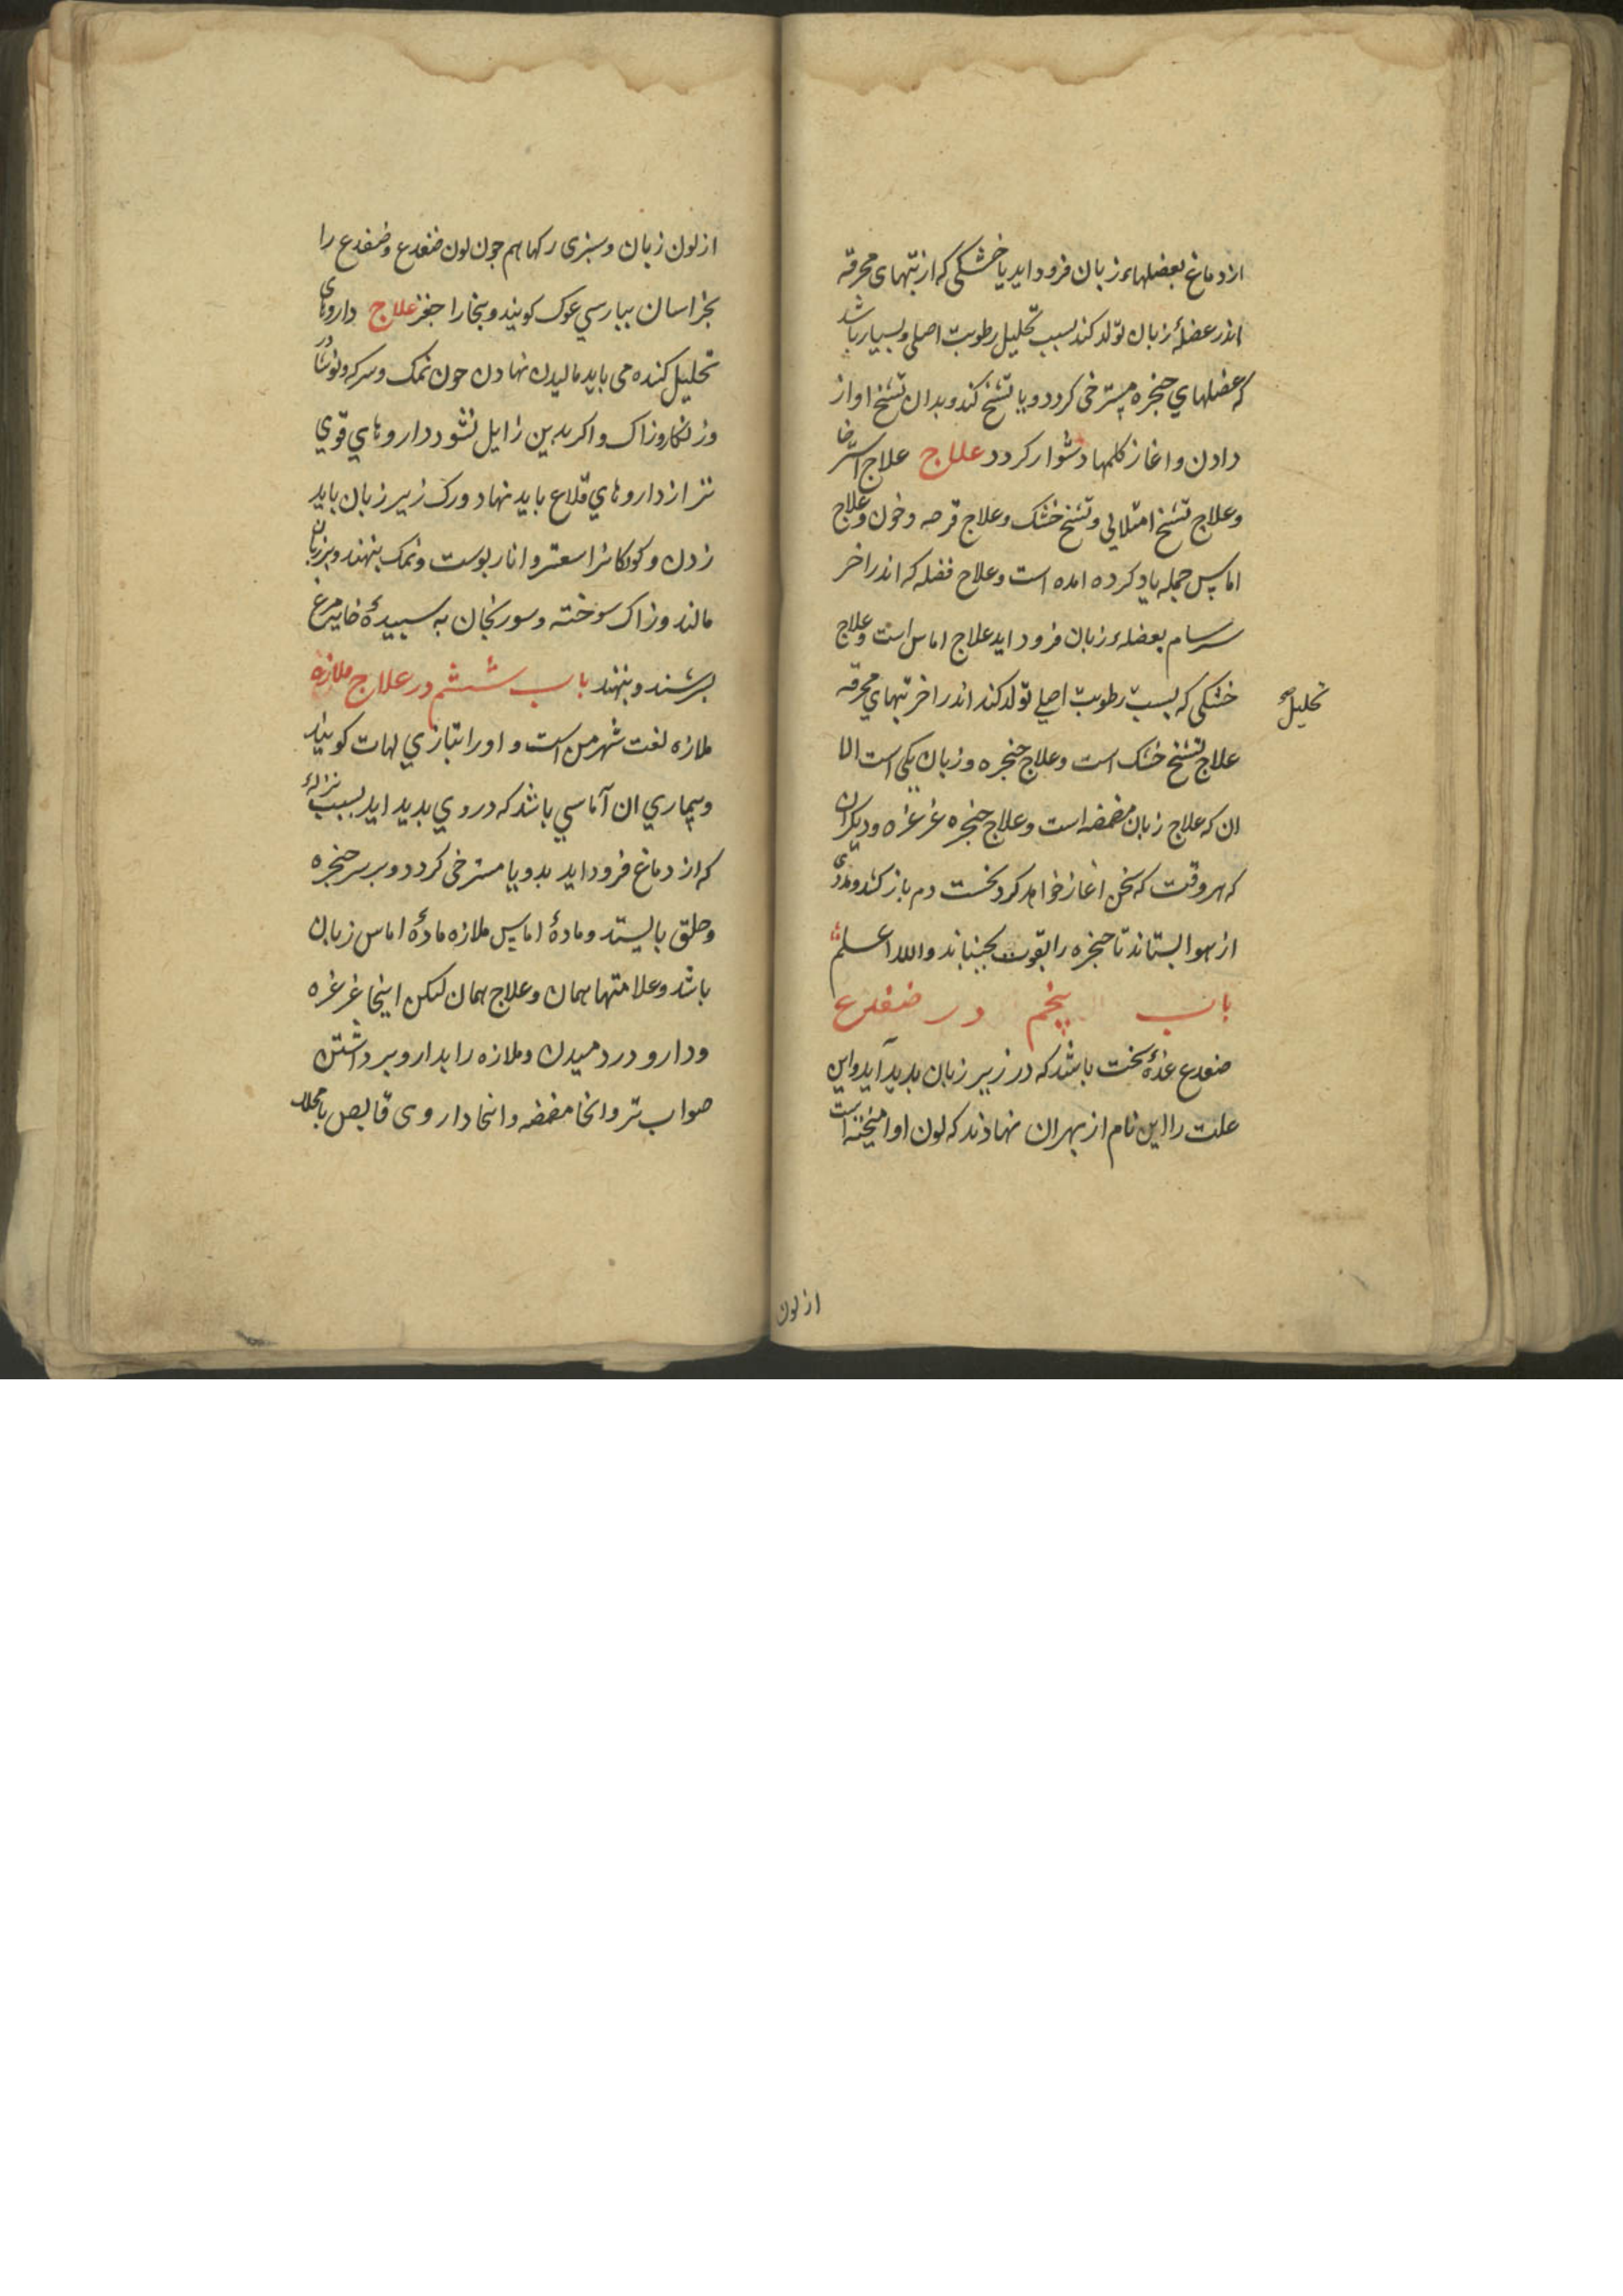 از دماغ بعضلهاء زبان فرود اید یا خشکی که از تبهای محرقه
اندر عضلهٔ زبان تولد کند بسبب تحلیل رطوبت اصلی و بسیار باشد
که عضلهاي حنجره مسترخی کردد و یا تشنج کند و بدان تشنج اواز
دادن و اغاز کلمها دشوار کردد علاج علاج استرخا
و علاج تشنج امتلایی و تشنج خشک و علاج قرحه و خون و علاج
اماس جمله یاد کرده امده است و علاج فضله که اندر اخر
سرسام بعضلهء زبان فرود اید علاج اماس است و علاج
خشکی که بسبب رطوبت اصلي تولد کند اندر اخر تبهاي محرقه
تحلیل
علاج تشنج خشک است و علاج حنجره و زبان یکی است الا
ان که علاج زبان مضمضه است و علاج حنجره غرغره و دیکر ان
که هر وقت که سخن اغاز خواهد کرد نخست دم باز کند و مددی
از هوا بستاند تا حنجره را بقوت بجنباند والله اعلم
باب پنجم در ضفدع
ضفدع غدهٔ سخت باشد که در زیر زبان بدید آید و این
علت را این نام از بهر ان نهادند که لون او امیخته است
از لون
از لون زبان و سبزی رکها هم جون لون ضفدع و ضفدع را
بخراسان ببارسي غوک کویند و ببخارا جغز علاج داروهای
تحلیل کننده می باید مالیدن نهادن جون نمک و سرکه و نوشادر
و زنکار و زاک و اکر بدین زایل نشود داروهاي قوي
تر از داروهاي قلاع باید نهاد و رک زیر زبان باید
زدن و کودکانرا سعتر و انار بوست و نمک بنهند و بر زبان
مالند و زاک سوخته و سورنجان به سبیدهٔ خایه مرغ
بسرشند و بنهند باب ششم در علاج ملازه
ملازه لغت شهر من است و اورا بتازي لهات کویند
و بیماري ان آماسي باشد که در وي بدید اید بسبب نزلهٔ
که از دماغ فرود اید بدو یا مسترخی کردد و بر سر حنجره
و حلق بایستد و مادهٔ اماس ملازه مادهٔ اماس زبان
باشد و علامتها همان و علاج همان لیکن اینجا غرغره
و دارو در دمیدن و ملازه را بدارو برداشتن
صواب تر و انجا مضمضه و انجا داروی قابض با محلل